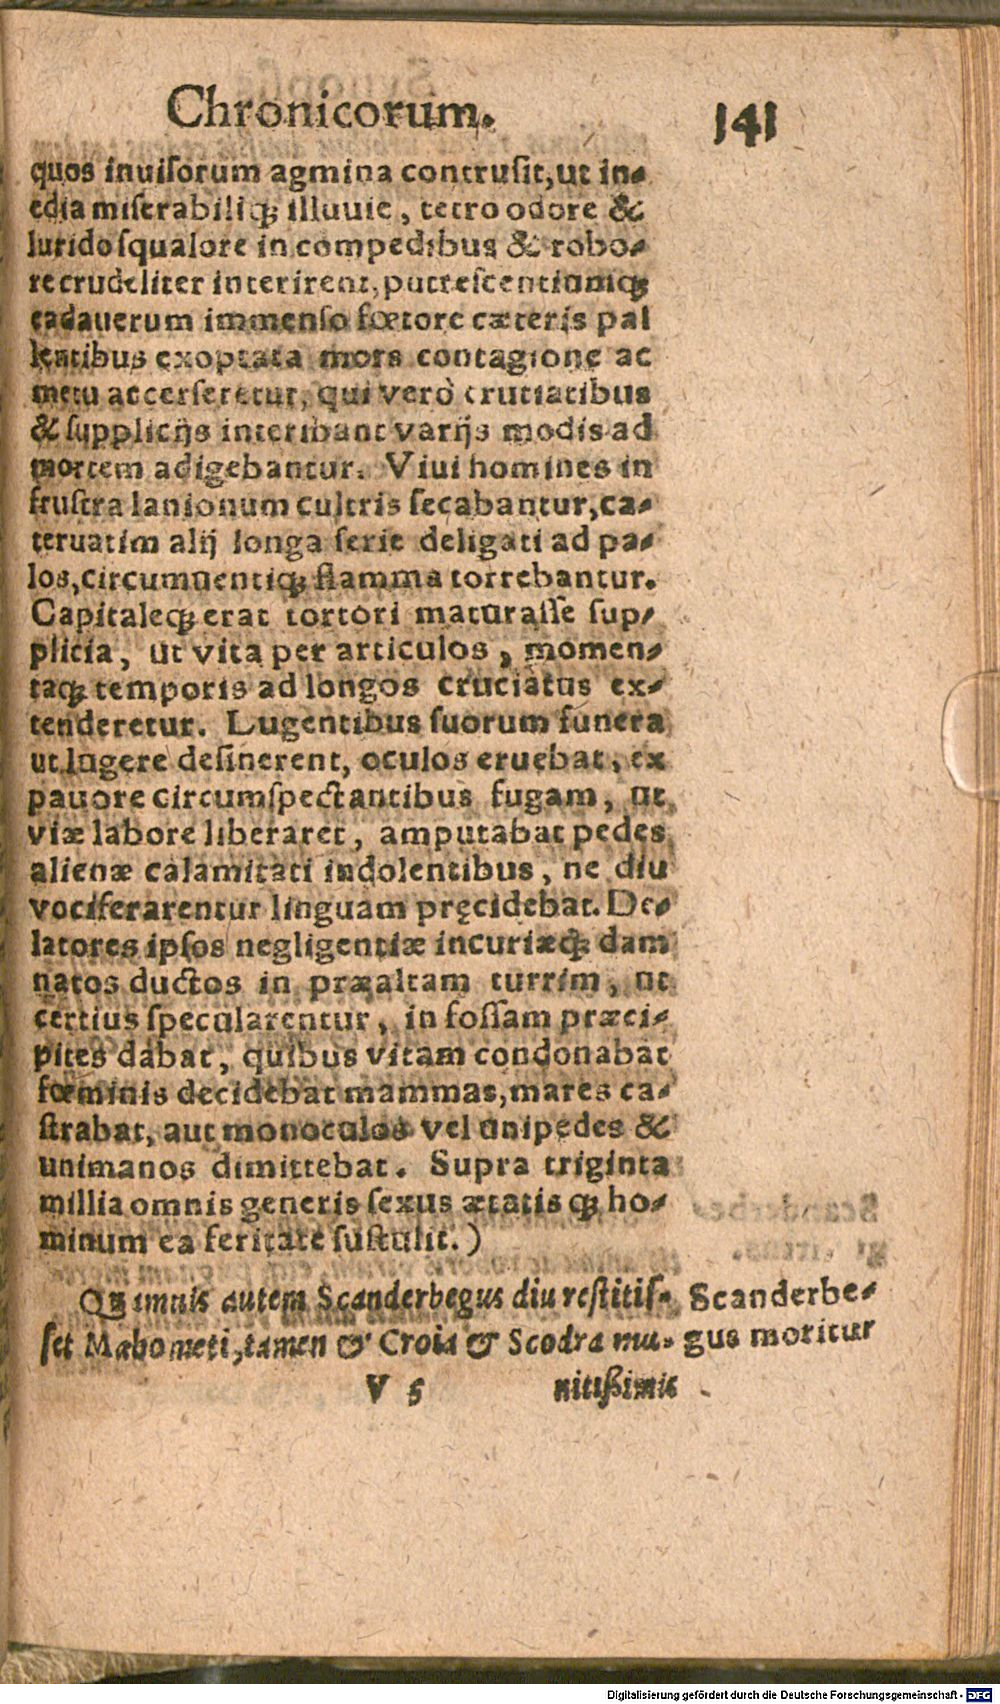 Chronicorum. 141
quos inuisorum agmina contrusit, ut in-
edia miserabiliq; illuuie, tetro odore &
lurido squalore in compedibus & robo-
re crudeliter interirent, putrescentiumq;
cadauerum immenso fœtore cæteris pal
lentibus exoptata mors contagione ac
metu accerseretur, qui verò cruciatibus
& supplicijs interibant varijs modis ad
mortem adigebantur. Viui homines in
frustra lanionum cultris secabantur, ca-
teruatim alij longa serie deligati ad pa-
los, circumuentiq; flamma torrebantur.
Capitaleq; erat tortori maturasse sup-
plicia, ut vita per articulos, momen-
taq; temporis ad longos cruciatus ex-
tenderetur. Lugentibus suorum funera
ut lugere desinerent, oculos eruebat, ex
pauore circumspectantibus fugam, ut
viæ labore liberaret, amputabat pedes
alienæ calamitati indolentibus, ne diu
vociferarentur linguam pręcidebat. De-
latores ipsos negligentiæ incuriæq; dam
natos ductos in præaltam turrim, ut
certius specularentur, in fossam præci-
pites dabat, quibus vitam condonabat
fœminis decidebat mammas, mares ca-
strabat, aut monoculos vel unipedes &
unimanos dimittebat. Supra triginta
millia omnis generis sexus ætatisq; ho-
minum ea feritate sustulit.)
Quamuis autem Scanderbegus diu restitis-
set Mahometi, tamen & Croia & Scodra mu-
Scanderbe-
gus moritur
V 5 nitißimis
Digitalisierung gefördert durch die Deutsche Forschungsgemeinschaft - DFG